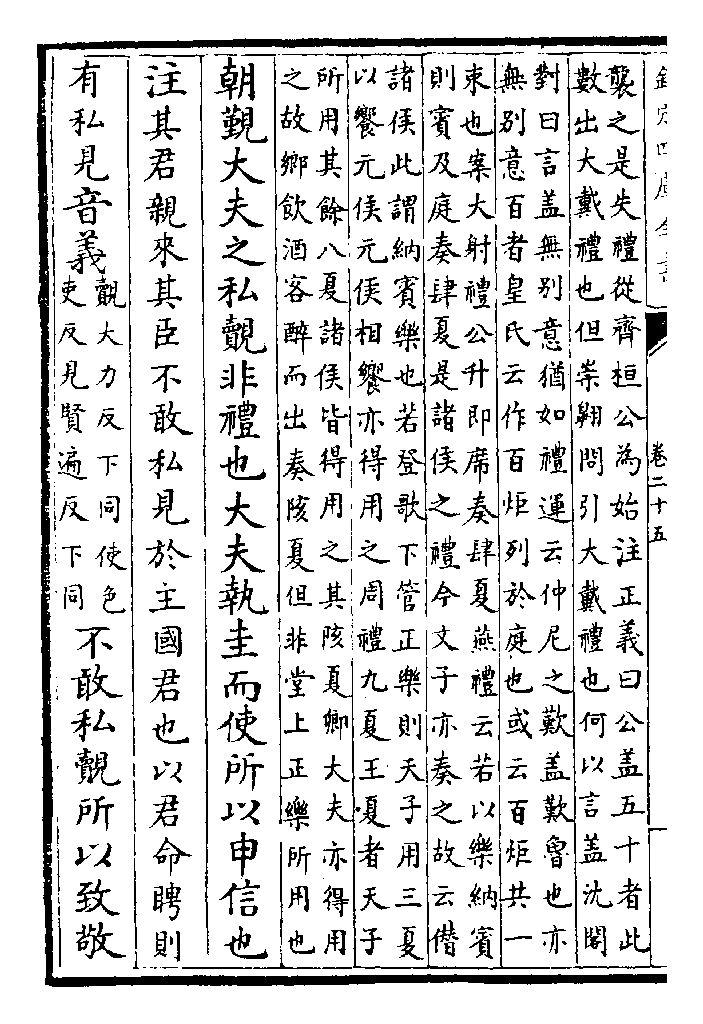 欽定四庫全書
卷二十五
襲之是失禮從齊桓公為始注正義曰公盖五十者此
數出大戴禮也但崇翱問引大戴禮也何以言盖沈閣
對曰言盖無別意猶如禮運云仲尼之歎盖歎魯也亦
無別意百者皇氏云作百炬列於庭也或云百炬共一
束也案大射禮公升即席奏肆夏燕禮云若以樂納賓
則賓及庭奏肆夏是諸侯之禮今文子亦奏之故云僭
諸侯此謂納賓樂也若登歌下管正樂則天子用三夏
以饗元侯元侯相饗亦得用之周禮九夏王夏者天子
所用其餘八夏諸侯皆得用之其陔夏卿大夫亦得用
之故鄉飲酒客醉而出奏陔夏但非堂上正樂所用也
朝覲大夫之私覿非禮也大夫執圭而使所以申信也
注其君親來其臣不敢私見於主國君也以君命聘則
有私見音義
覿大力反下同使色
吏反見賢遍反下同
不敢私覿所以致敬